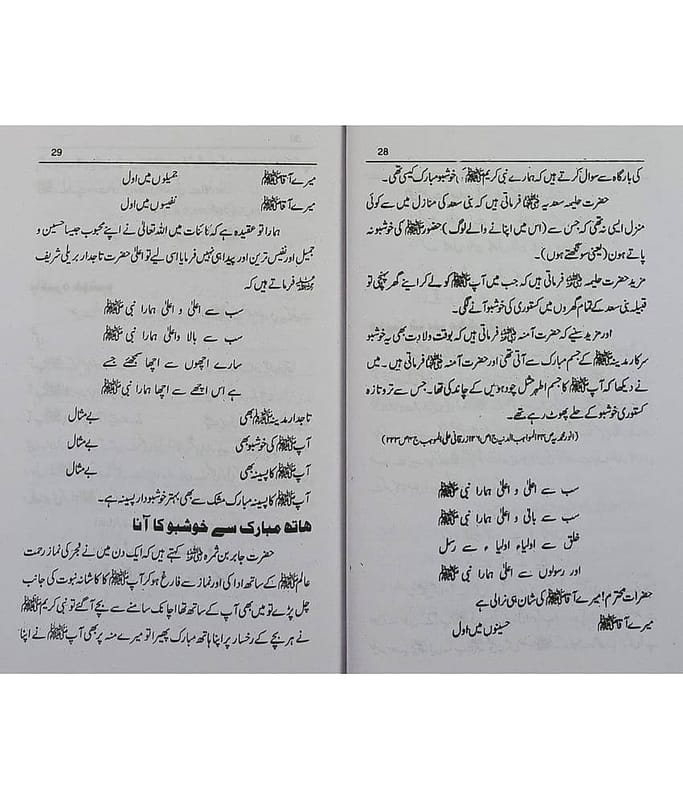 28
کی بارگاہ سے سوال کرتے ہیں کہ ہمارے نبی کریم ﷺ خوشبو مبارک کیسی تھی۔
حضرت حلیمہ سعدیہ رضی اللہ عنہا فرماتی ہیں کہ بنی سعد کی منازل میں سے کوئی
منزل ایسی نہ تھی کہ جس سے (اس میں اپنانے والے لوگ) حضور ﷺ کی خوشبو نہ
پاتے ہوں (یعنی سونگھتے ہوں)۔
مزید حضرت حلیمہ رضی اللہ عنہا فرماتی ہیں کہ جب میں آپ ﷺ کو لے کر اپنے گھر پہنچی تو
قبیلہ بنی سعد کے تمام گھروں میں کستوری کی خوشبو آنے لگی۔
اور مزید سنیے کہ حضرت آمنہ رضی اللہ عنہا فرماتی ہیں کہ بوقت ولادت بھی یہ خوشبو
سرکار مدینہ ﷺ کے جسم مبارک سے آتی تھی اور حضرت آمنہ رضی اللہ عنہا فرماتی ہیں۔ میں
نے دیکھا کہ آپ ﷺ کا جسم اطہر مثل چودھویں کے چاند کی تھا۔ جس سے تروتازہ
کستوری خوشبو کے حلے پھوٹ رہے تھے۔
سب سے اعلیٰ و اعلیٰ ہمارا نبی ﷺ
سب سے بالی و اعلیٰ ہمارا نبی ﷺ
خلق سے اولیاء اولیاء سے رسل
اور رسولوں سے اعلیٰ ہمارا نبی ﷺ
حضرات محترم! میرے آقا ﷺ کی شان ہی نرالی ہے
میرے آقا ﷺ حسینوں میں اول
29
میرے آقا ﷺ جمیلوں میں اول
میرے آقا ﷺ نفیسوں میں اول
ہمارا تو عقیدہ ہے کہ کائنات میں اللہ تعالیٰ نے اپنے محبوب جیسا حسین و
جمیل اور نفیس ترین اور پیدا ہی نہیں فرمایا اسی لیے تو اعلیٰ حضرت تاجدار بریلی شریف
فرماتے ہیں کہ
سب سے اعلیٰ و اعلیٰ ہمارا نبی ﷺ
سب سے بالا و اعلیٰ ہمارا نبی ﷺ
سارے اچھوں سے اچھا سمجھئے جسے
ہے اس اچھے سے اچھا ہمارا نبی ﷺ
تاجدار مدینہ ﷺ بھی بے مثال
آپ ﷺ کی خوشبو بھی بے مثال
آپ ﷺ کا پسینہ بھی بے مثال
آپ ﷺ کا پسینہ مبارک مشک سے بھی بہتر خوشبودار پسینہ ہے۔
ہاتھ مبارک سے خوشبو کا آنا
حضرت جابر بن ثمرہ رضی اللہ عنہ کہتے ہیں کہ ایک دن میں نے فجر کی نماز رحمت
عالم ﷺ کے ساتھ ادا کی اور نماز سے فارغ ہو کر آپ ﷺ کا کاشانہ نبوت کی جانب
چل پڑے تو میں بھی آپ کے ساتھ تھا اچانک سامنے سے بچے آ گئے تو نبی کریم ﷺ
نے ہر بچے کے رخسار پر اپنا ہاتھ مبارک پھیرا تو میرے منہ پر بھی آپ ﷺ نے اپنا